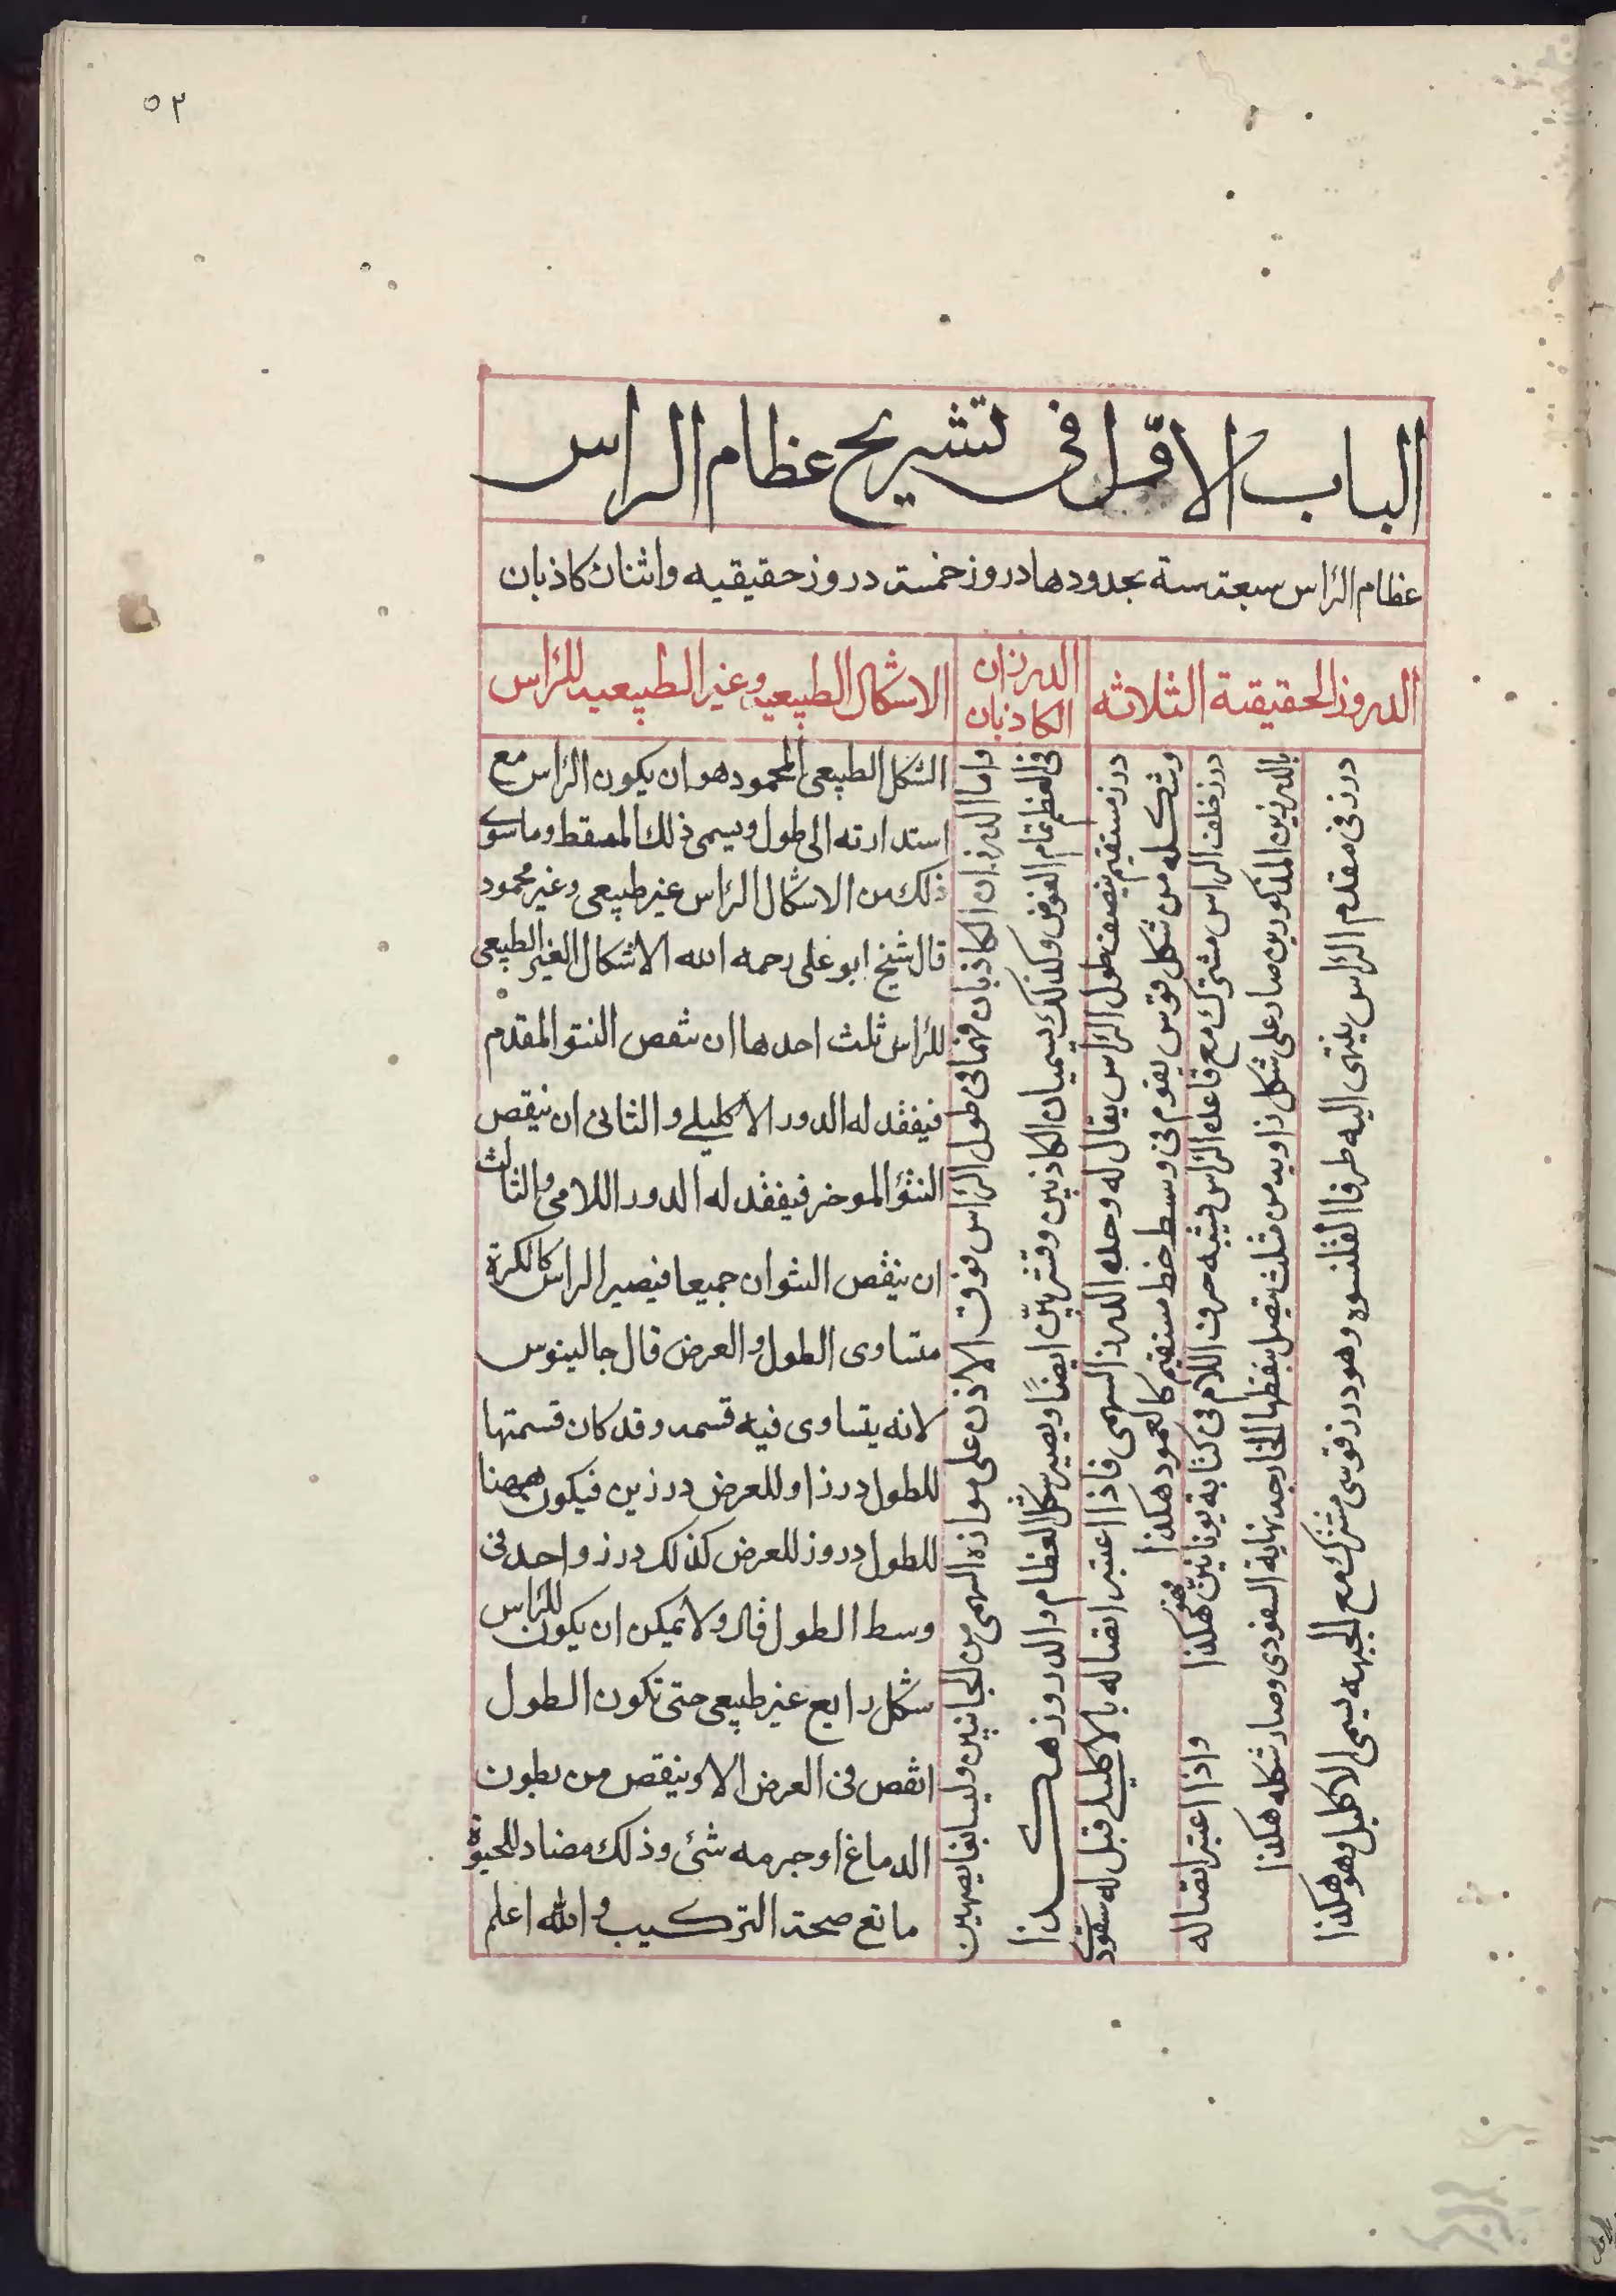 ٥٣
الباب الاوّل فى تشريح عظام الراس
عظام الرأس سبعة ستة بحدودها دروز خمسة دروز حقيقيه واثنان كاذبان
الدروز الحقيقية الثلاثه
درز فى مقدم الرأس ينتهى اليه طرفا القلنسوه وهو درز قوسى مشترك مع الجبهه يسمى الاكليل وهو هكذا
درز خلف الراس مشترك مع قاعدة الرأس يشبه حرف اللام فى كتابة يونانيّن هكذا واذا اعتبر اتصاله
بالدرزين المذكورين صار على شكل زاويه من مثلث يتصل بنقطها الخارجه نهاية السفودى وصار شكله هكذا
درز مستقيم ينصف طول الرأس يقال له وحده الدرز السهمى فاذا اعتبر اتصاله بالاكليلى قيل له سفودى
وشكله من شكل قوس يقوم فى وسط خط مستقيم كالعمود هكذا
الدرزان
الكاذبان
واما الدرزان الكاذبان فهما فى طول الرأس فوق الاذن على موازاه السهمى من الجانبين وليسا بغايصين
فى العظم تمام الغوض وكذلك يسميان الكاذبين وقشريّين ايضًا ويصير شكل العظام والدروز هكذا
الاشكال الطبيعيه وغير الطبيعيه للرأس
الشكل الطبيعى المحمود هو ان يكون الرأس مع
استدارته الى طول ويسمى ذلك المسقط وما سوى
ذلك من الاشكال الرأس غير طبيعى وغير محمود
قال شيخ ابو على رحمه الله الاشكال الغير الطبيعى
للرأس ثلث احدها ان ينقص النتو المقدم
فيفقد له الدور الاكليلى والثانى ان ينقص
النتؤ الموخر فيفقد له الدور اللامى والثالث
ان ينقص النتوان جميعا فيصير الراس كالكرة
متساوى الطول والعرض قال جالينوس
لانه يتساوى فيه قسمه وقد كان قسمتها
للطول درزا وللعرض درزين فيكون ههنا
للطول دروز للعرض كذلك درز واحد فى
وسط الطول قال ولا يمكن ان يكون للرأس
شكل رابع غير طبيعى حتى تكون الطول
انقص فى العرض الا وينقص من بطون
الدماغ او جرمه شئ وذلك مضاد للحيوة
مانع صحة التركيب والله اعلم